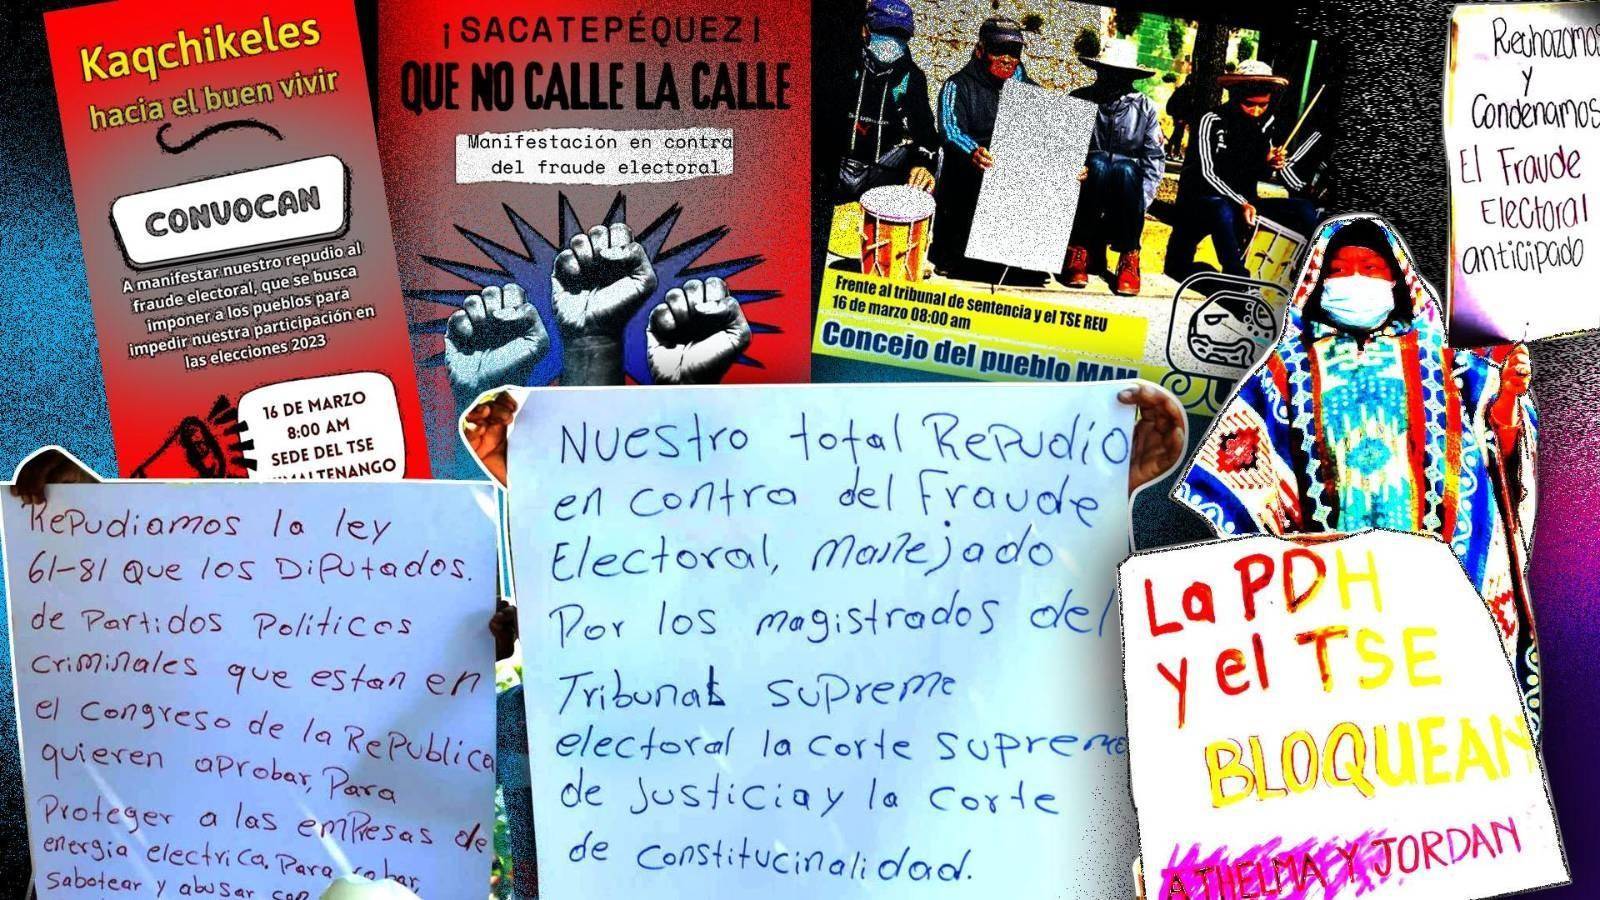 Kaqchikeles
hacia el buen vivir
CONVOCAN
A manifestar nuestro repudio al
fraude electoral, que se busca
imponer a los pueblos para
impedir nuestra participación en
las elecciones 2023
16 DE MARZO
8:00 AM
SEDE DEL TSE
¡SACATEPÉQUEZ!
QUE NO CALLE LA CALLE
Manifestación en contra
del fraude electoral
Frente al tribunal de sentencia y el TSE REU
16 de marzo 08:00 am
Concejo del pueblo MAM
Rechazamos
y
Condenamos
El Fraude
Electoral
anticipado
Repudiamos la ley
61-81 que los Diputados.
de Partidos Politicos
criminales que estan en
el congreso de la Republica
quieren aprobar, Para
Proteger a las empresas de
energia electrica. Para robar,
sabotear y abusar con
Nuestro total Repudio
en contra del Fraude
Electoral, manejado
Por los magistrados del
Tribunal supreme
electoral la corte supreme
de Justicia y la corte
de constitucinalidad.
La PDH
y el TSE
BLOQUEAN
A THELMA Y JORDAN